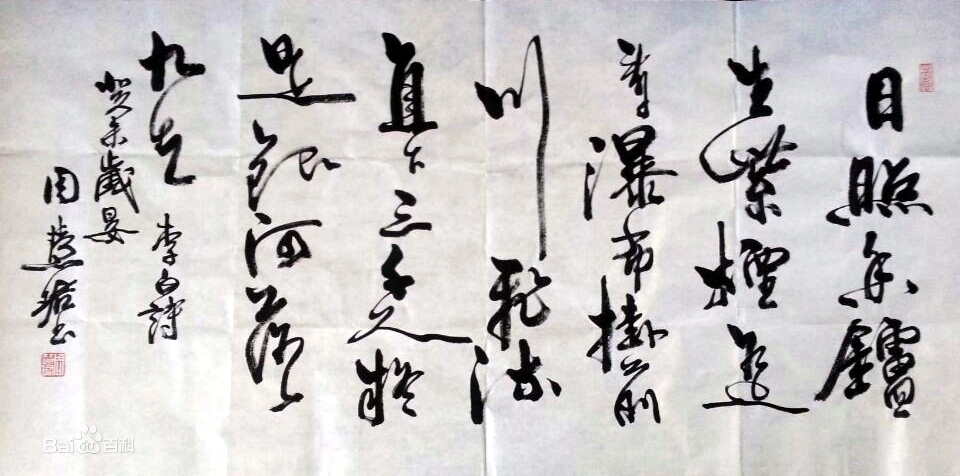 日照香鑪
生紫煙遙
看瀑布掛前
川飛流
直下三千尺疑
是銀河落
九天 李白詩
癸未歲晏
周慧珺书
Bai百科